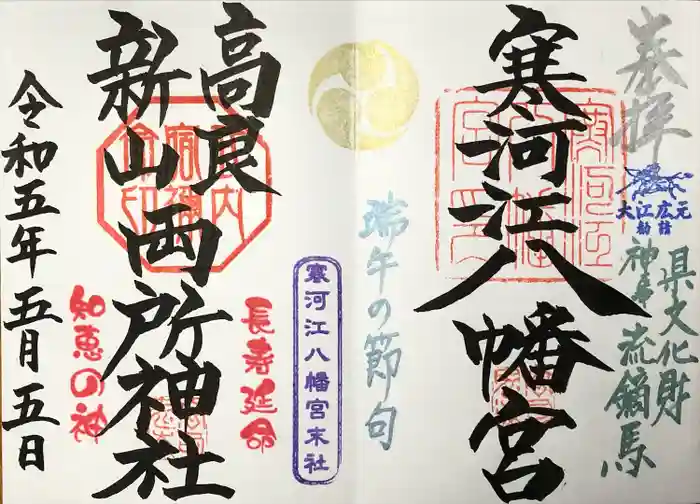 奉拝
大江広元
勧請
県文化財
神事 流鏑馬
寒河江八幡宮
端午の節句
寒河江八幡宮末社
長寿延命
高良
新山両所神社
知恵の神
令和五年五月五日